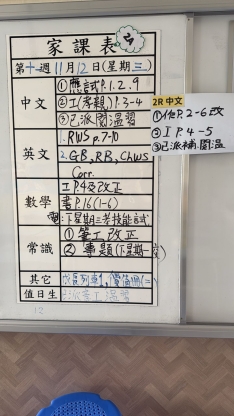 家課表
第十一週11月12日(星期三)
中文
①應試P.1.2.9
②工(孝親)P.3-4
③已派閱溫習
英文
1.RWS p.7-10
2.GB,RB,ChWS
Corr.
數學
工P.4及改正
書P.16(1-6)
下星期三考技能試
常識
①筆工改正
②專題(下星期一交)
其它
值日生
12
2R 中文
①作P.2-6改
②工P.4-5
③已派補.閱溫